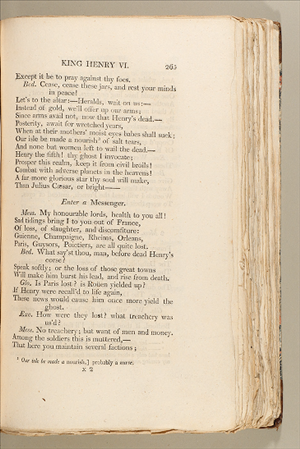 KING HENRY VI. 263
Except it be to pray against thy foes.
Bed. Cease, cease these jars, and rest your minds
in peace!
Let's to the altar:—Heralds, wait on us:—
Instead of gold, we'll offer up our arms;
Since arms avail not, now that Henry's dead.—
Posterity, await for wretched years,
When at their mothers' moist eyes babes shall suck;
Our isle be made a nourish¹ of salt tears,
And none but women left to wail the dead.—
Henry the fifth! thy ghost I invocate;
Prosper this realm, keep it from civil broils!
Combat with adverse planets in the heavens!
A far more glorious star thy soul will make,
Than Julius Cæsar, or bright——
Enter a Messenger.
Mess. My honourable lords, health to you all!
Sad tidings bring I to you out of France,
Of loss, of slaughter, and discomfiture:
Guienne, Champaigne, Rheims, Orleans,
Paris, Guysors, Poictiers, are all quite lost.
Bed. What say'st thou, man, before dead Henry's
corse?
Speak softly; or the loss of those great towns
Will make him burst his lead, and rise from death.
Glo. Is Paris lost? is Roüen yielded up?
If Henry were recall'd to life again,
These news would cause him once more yield the
ghost.
Exe. How were they lost? what treachery was
us'd?
Mess. No treachery; but want of men and money.
Among the soldiers this is muttered,—
That here you maintain several factions;
¹ Our isle be made a nourish,] probably a nurse.